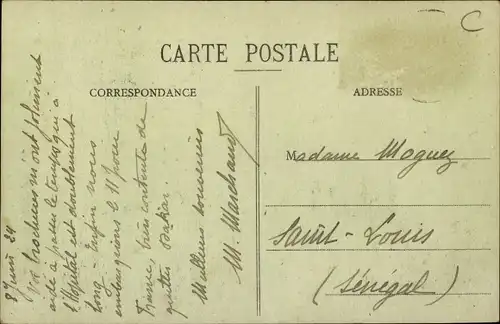 CARTE POSTALE
CORRESPONDANCE
ADRESSE
C
8 Juin 24
Vos brochures m'ont joliment
aidé à passer le temps qui à
l'hôpital est doublement
long - Enfin nous
embarquons le 11 pour
France, bien contente de
quitter Dakar.
Meilleurs souvenirs
M. Marchand
Madame Moguez
Saint-Louis
(Sénégal)